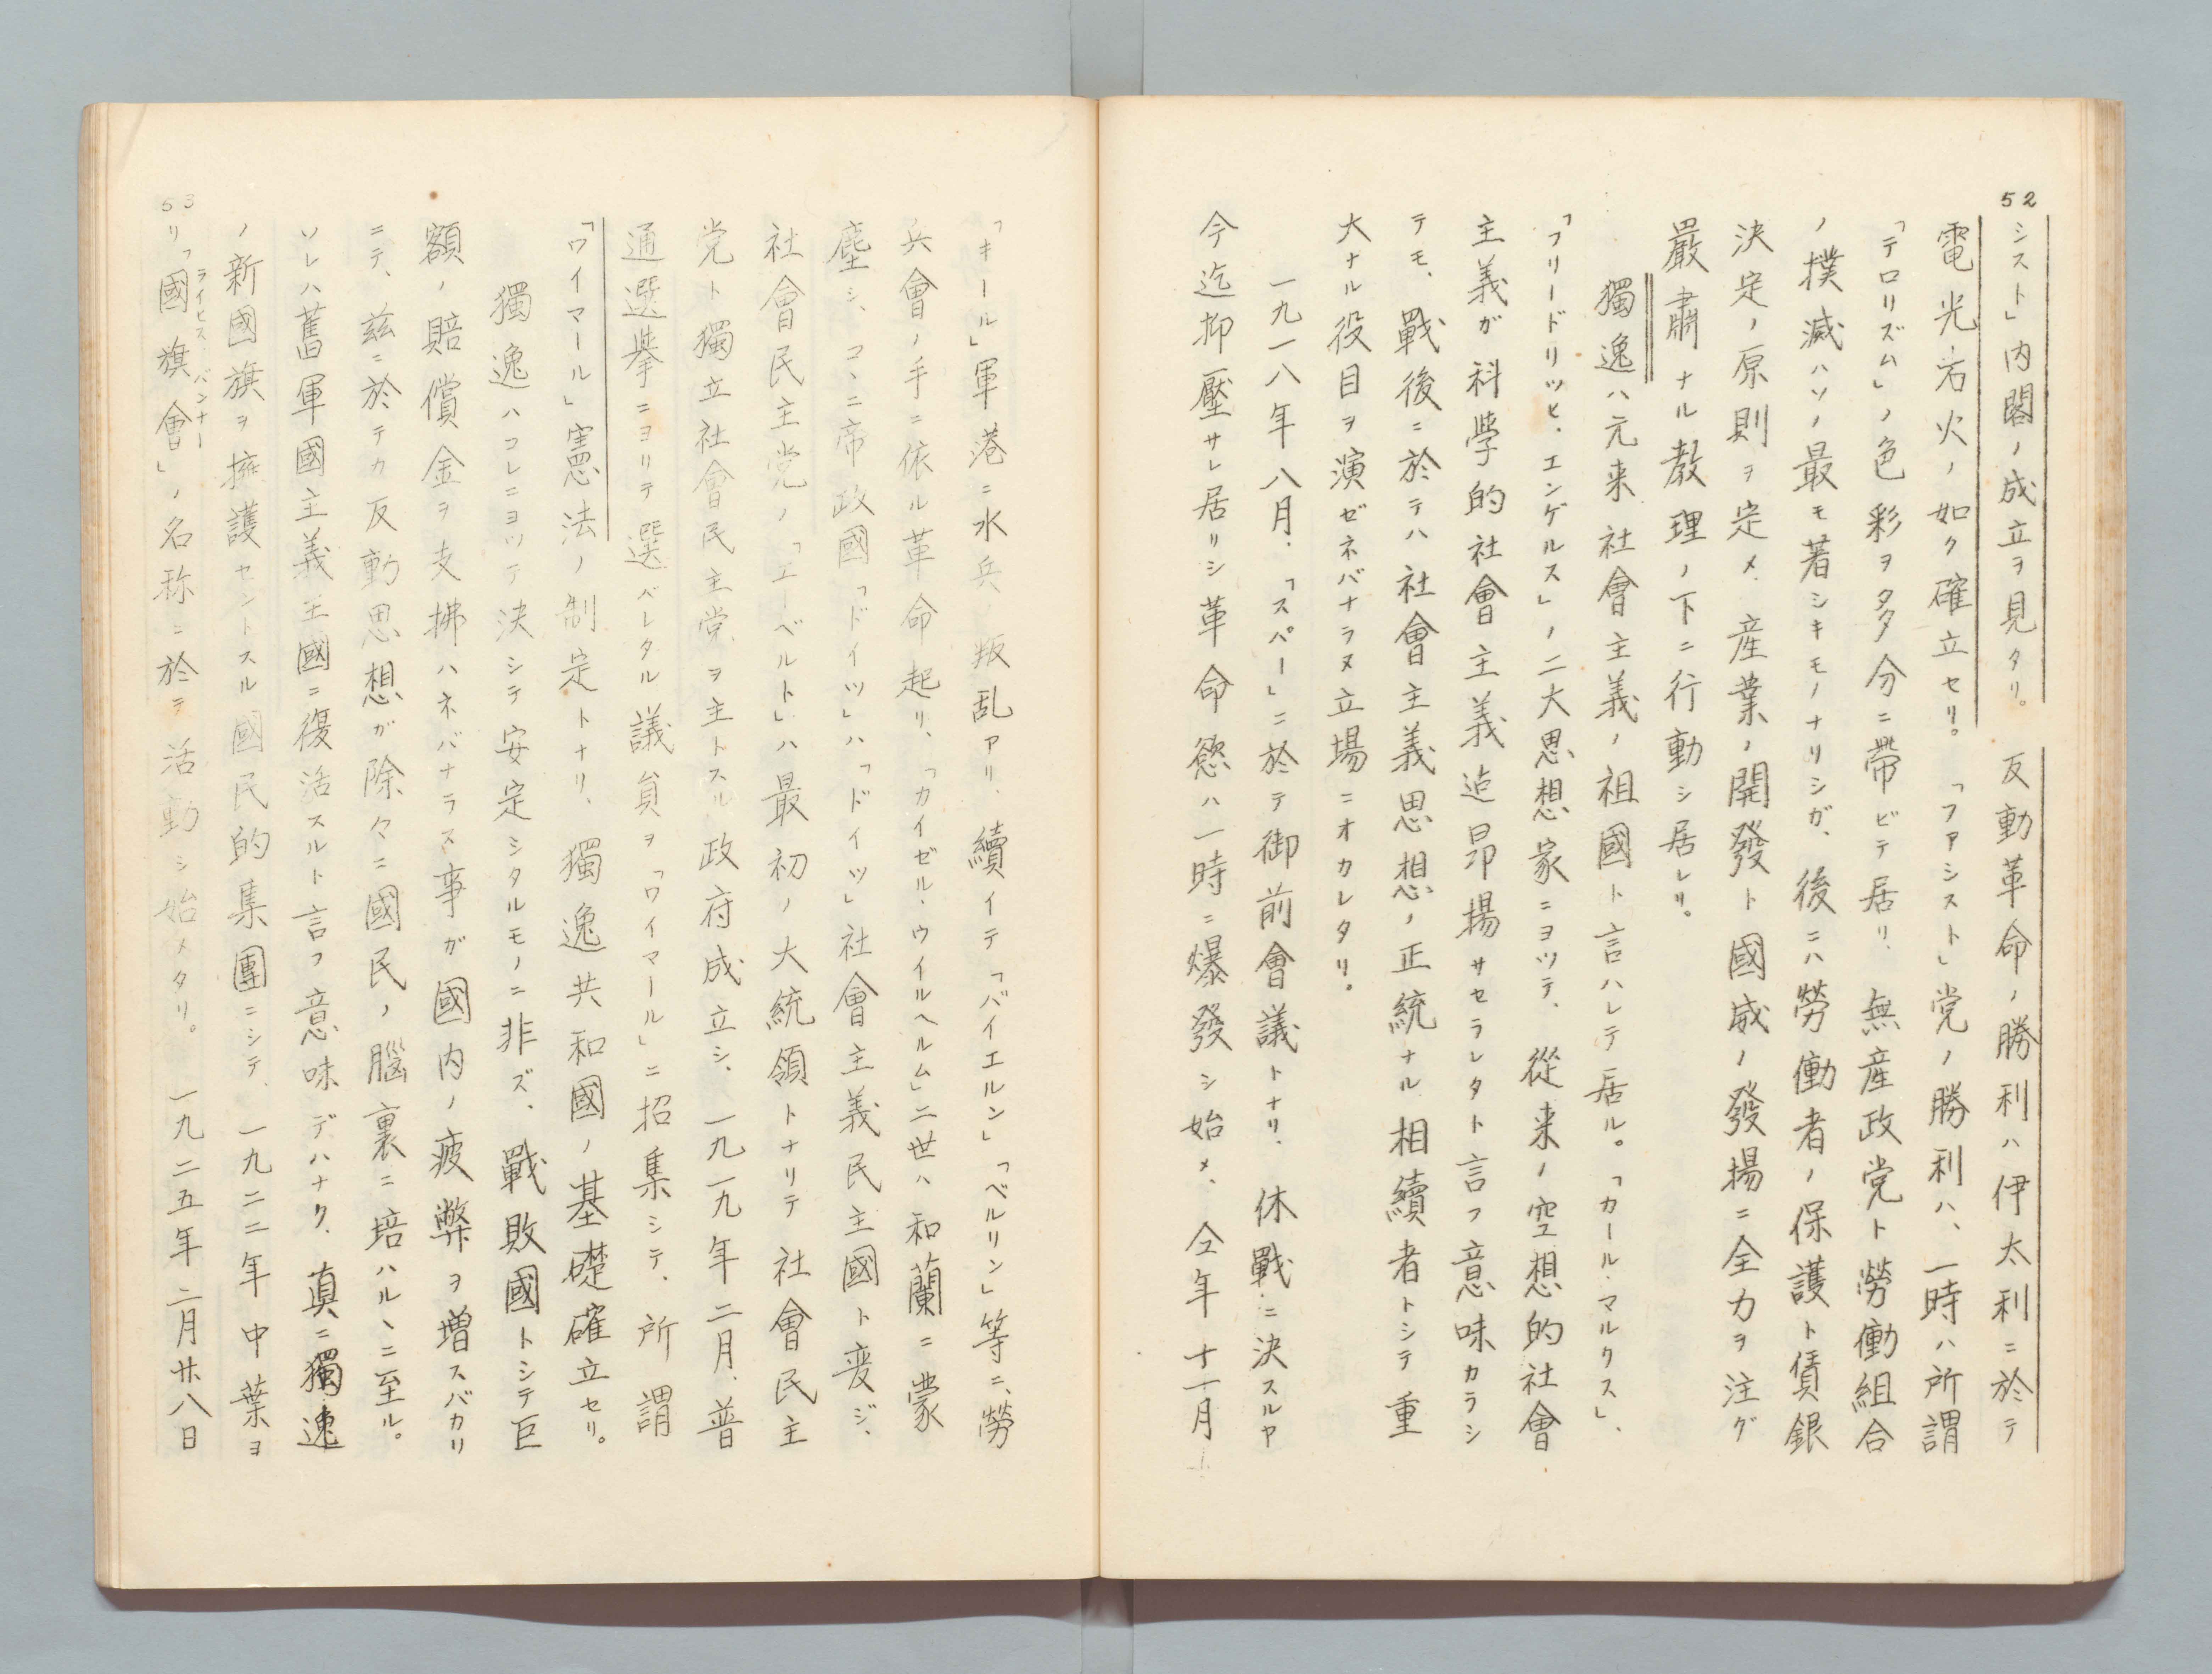 52
シスト」内閣ノ成立ヲ見タリ。 反動革命ノ勝利ハ伊太利ニ於テ
電光石火ノ如ク確立セリ。「ファシスト」党ノ勝利ハ、一時ハ所謂
「テロリズム」ノ色彩ヲ多分ニ帶ビテ居リ、無産政党ト勞働組合
ノ撲滅ハソノ最モ著シキモノナリシガ、後ニハ勞働者ノ保護ト賃銀
決定ノ原則ヲ定メ、産業ノ開發ト國威ノ發揚ニ全力ヲ注グ
嚴肅ナル教理ノ下ニ行動シ居レリ。
獨逸ハ元来社會主義ノ祖國ト言ハレテ居ル。「カール・マルクス」、
「フリードリッヒ、エンゲルス」ノ二大思想家ニヨッテ、從来ノ空想的社會
主義ガ科學的社會主義迄昂揚サセラレタト言フ意味カラシ
テモ、戰後ニ於テハ社會主義思想ノ正統ナル相續者トシテ重
大ナル役目ヲ演ゼネバナラヌ立場ニオカレタリ。
一九一八年八月、「スパー」ニ於テ御前會議トナリ、休戰ニ決スルヤ
今迄抑壓サレ居リシ革命慾ハ一時ニ爆發シ始メ、仝年十一月
「キール」軍港ニ水兵ノ叛乱アリ、續イテ「バイエルン」「ベルリン」等ニ、勞
兵會ノ手ニ依ル革命起リ、「カイゼル・ウイルヘルム」二世ハ和蘭ニ蒙
塵シ、コヽニ帝政國「ドイツ」ハ「ドイツ」社會主義民主國ト変ジ、
社會民主党ノ「エーベルト」ハ最初ノ大統領トナリテ社會民主
党ト獨立社會民主党ヲ主トスル政府成立シ、一九一九年二月、普
通選挙ニヨリテ選バレタル議員ヲ「ワイマール」ニ招集シテ、所謂
「ワイマール」憲法ノ制定トナリ、獨逸共和國ノ基礎確立セリ。
獨逸ハコレニヨッテ決シテ安定シタルモノニ非ズ、戰敗國トシテ巨
額ノ賠償金ヲ支拂ハネバナラス事ガ國内ノ疲弊ヲ増スバカリ
ニテ、茲ニ於テカ反動思想ガ除々ニ國民ノ腦裏ニ培ハルヽニ至ル。
ソレハ舊軍國主義王國ニ復活スルト言フ意味デハナク、真ニ獨逸
ノ新國旗ヲ擁護セントスル國民的集團ニシテ、一九二二年中葉ヨ
リ「國旗會」ノ名称ニ於テ活動シ始メタリ。 一九二五年二月廿八日
ライヒス、バンナー
53